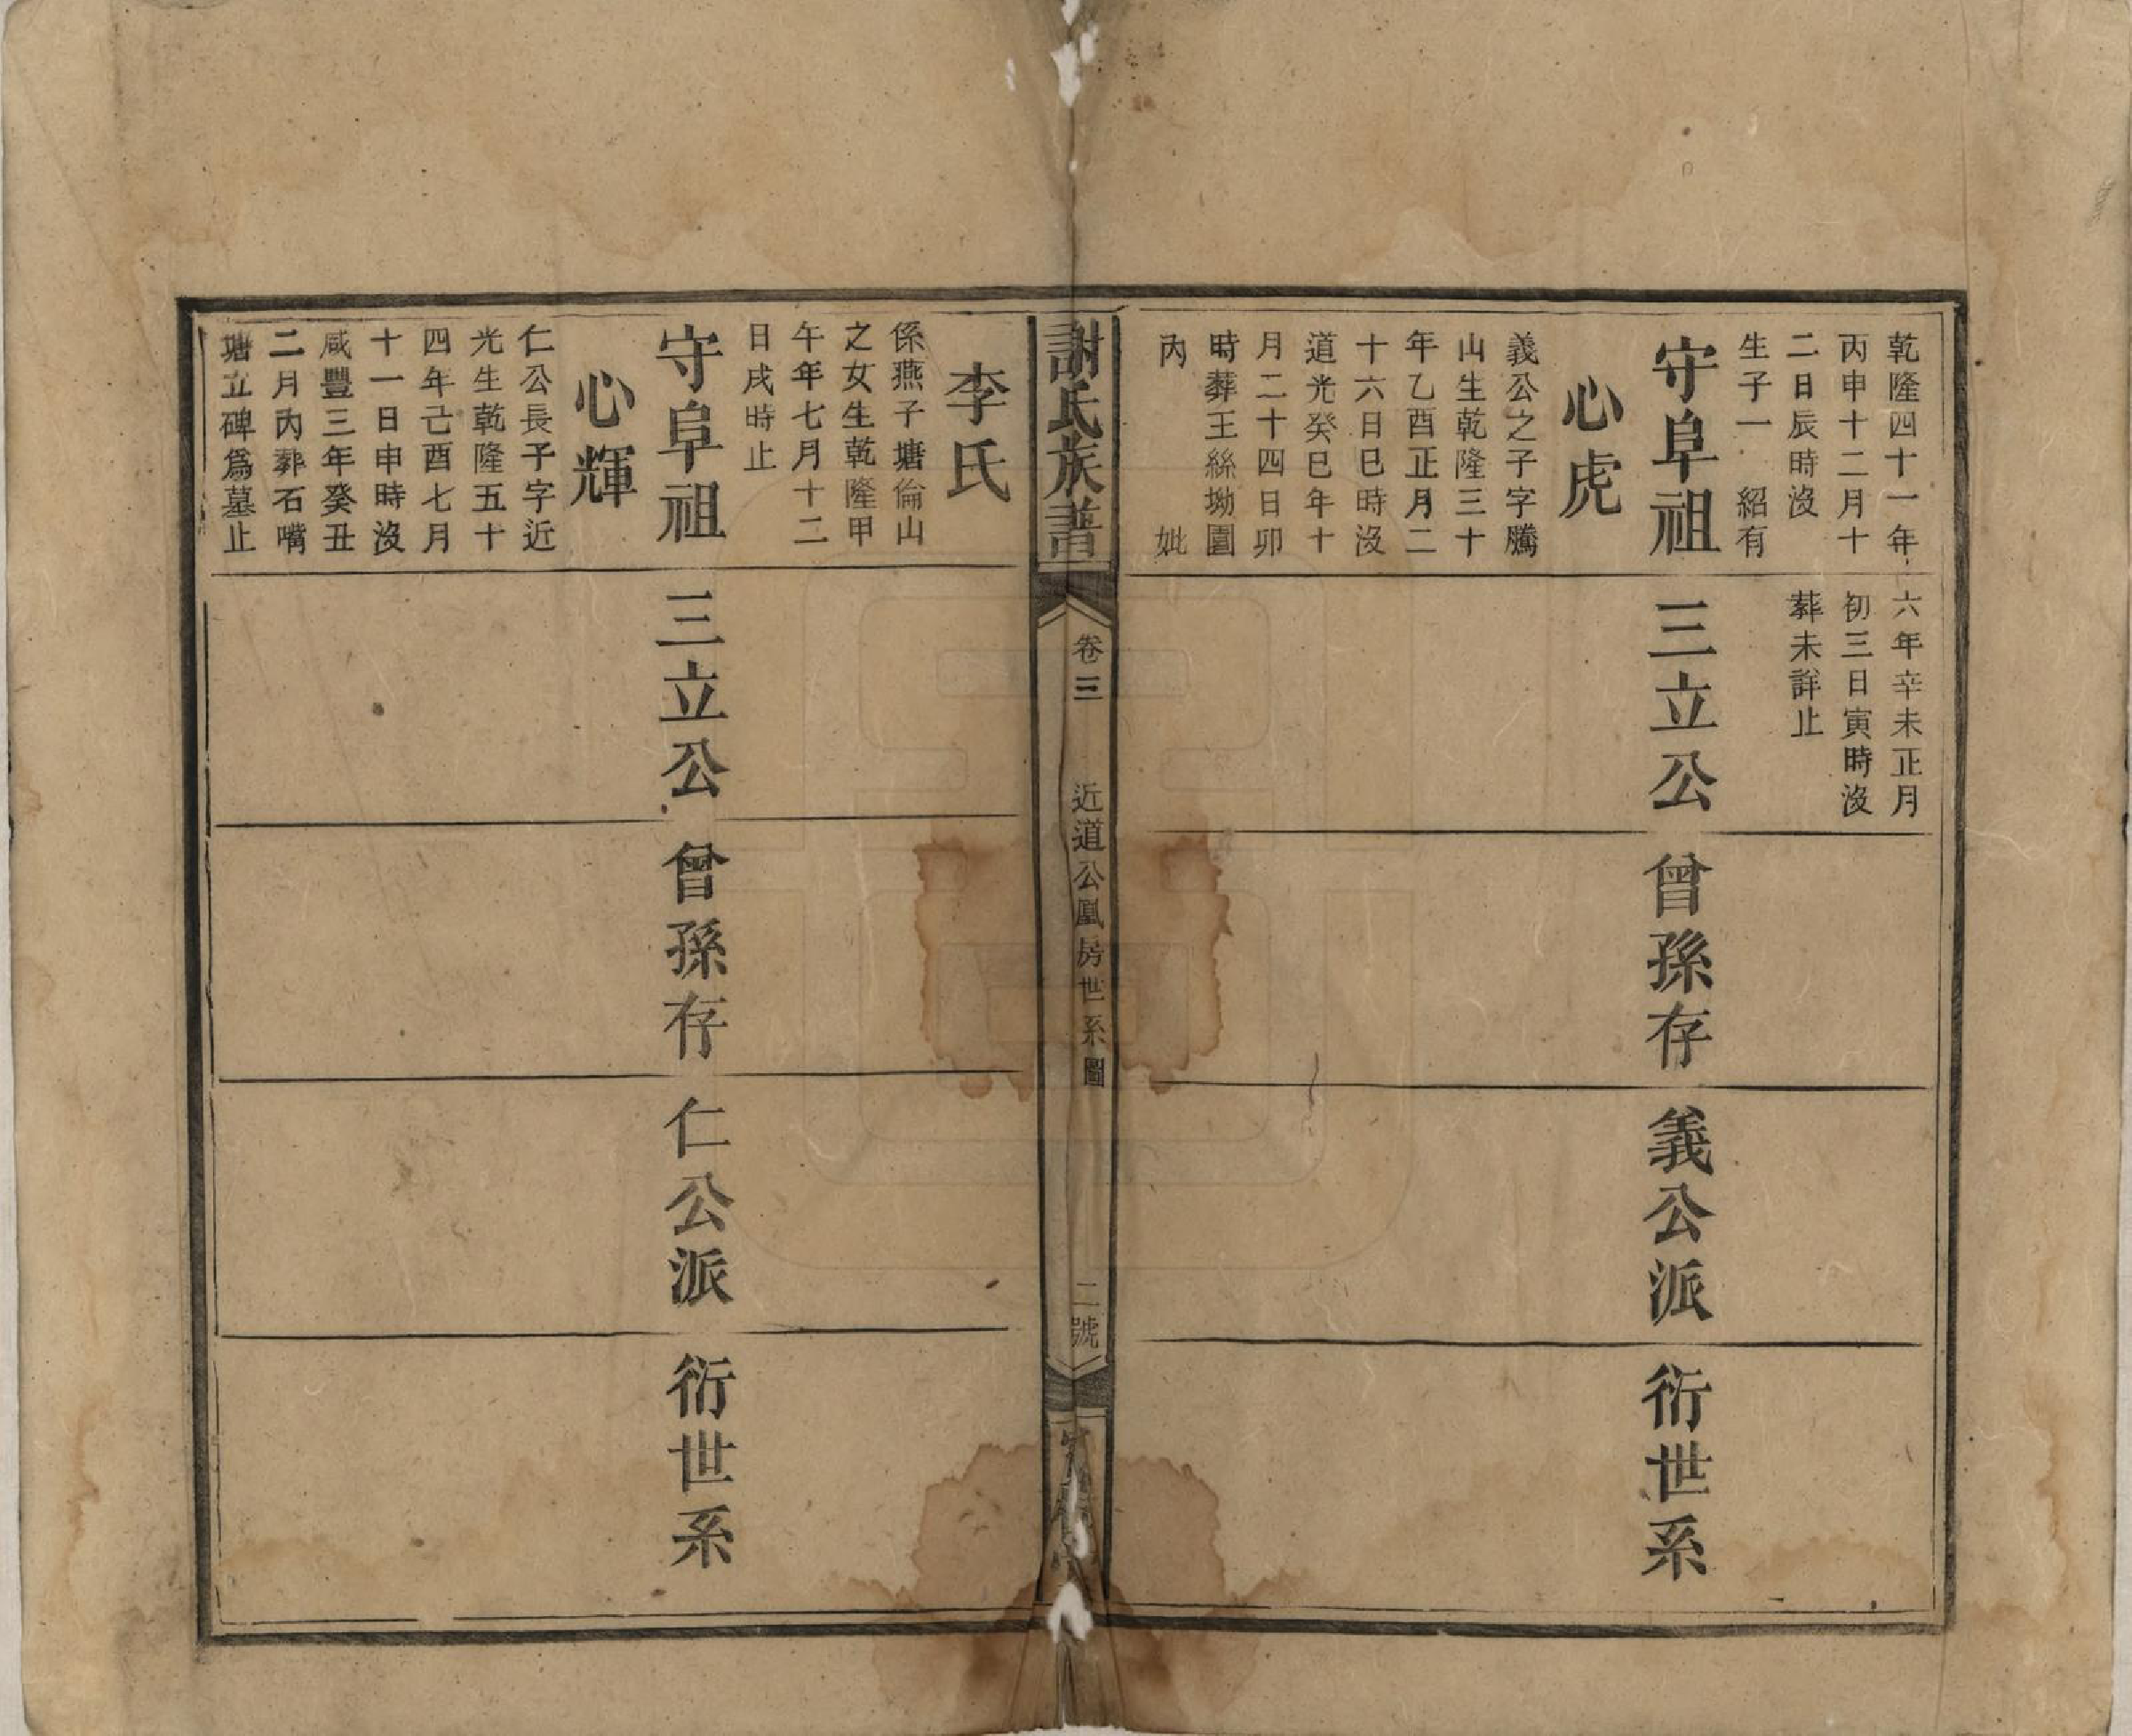 乾隆四十一年
丙申十二月十
二日辰時沒
生子一 紹有
六年辛未正月
初三日寅時沒
葬未詳止
守阜祖
三立公
曾孫存
義公派
衍世系
心虎
義公之子字騰
山生乾隆三十
年乙酉正月二
十六日巳時沒
道光癸巳年十
月二十四日卯
時葬王絲坳園
內 妣
謝氏族譜
卷三
近道公鳳房世系圖
二號
李氏
係燕子塘倫山
之女生乾隆甲
午年七月十二
日戌時止
守阜祖
三立公
曾孫存
仁公派
衍世系
心輝
仁公長子字近
光生乾隆五十
四年己酉七月
十一日申時沒
咸豐三年癸丑
二月內葬石嘴
塘立碑爲墓止